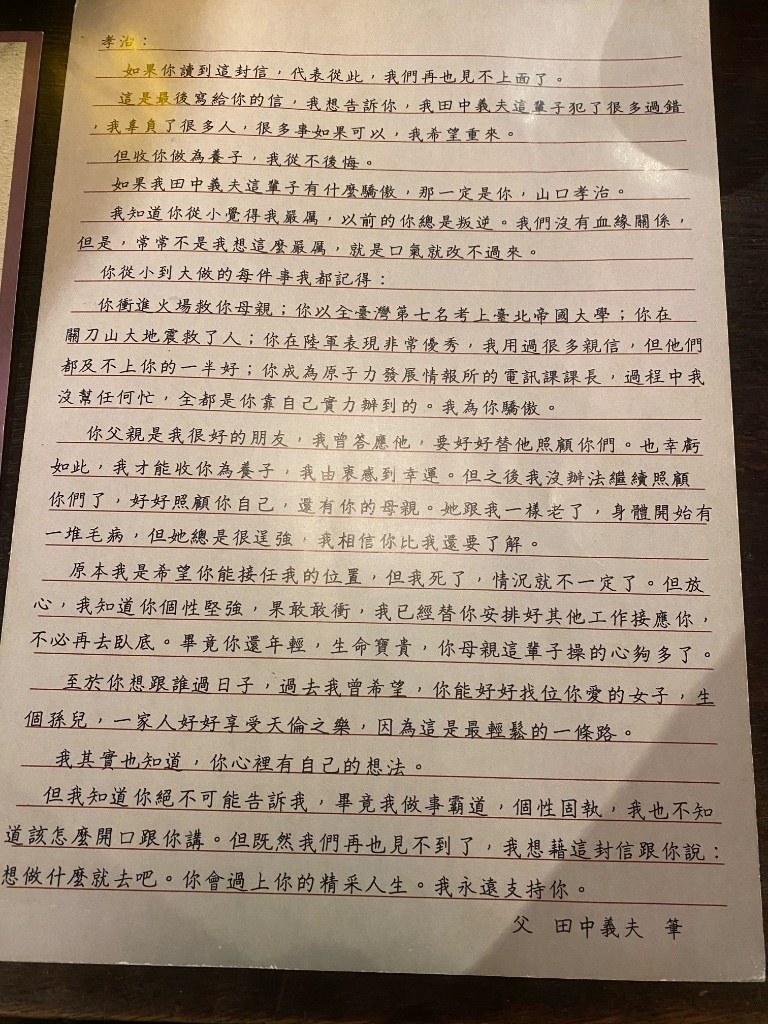 孝治：
如果你讀到這封信，代表從此，我們再也見不上面了。
這是最後寫給你的信，我想告訴你，我田中義夫這輩子犯了很多過錯
，我辜負了很多人，很多事如果可以，我希望重來。
但收你做為養子，我從不後悔。
如果我田中義夫這輩子有什麼驕傲，那一定是你，山口孝治。
我知道你從小覺得我嚴厲，以前的你總是叛逆。我們沒有血緣關係，
但是，常常不是我想這麼嚴厲，就是口氣就改不過來。
你從小到大做的每件事我都記得：
你衝進火場救你母親；你以全臺灣第七名考上臺北帝國大學；你在
關刀山大地震救了人；你在陸軍表現非常優秀，我用過很多親信，但他們
都及不上你的一半好；你成為原子力發展情報所的電訊課課長，過程中我
沒幫任何忙，全都是你靠自己實力辦到的。我為你驕傲。
你父親是我很好的朋友，我曾答應他，要好好替他照顧你們。也幸虧
如此，我才能收你為養子，我由衷感到幸運。但之後我沒辦法繼續照顧
你們了，好好照顧你自己，還有你的母親。她跟我一樣老了，身體開始有
一堆毛病，但她總是很逞強，我相信你比我還要了解。
原本我是希望你能接任我的位置，但我死了，情況就不一定了。但放
心，我知道你個性堅強，果敢敢衝，我已經替你安排好其他工作接應你，
不必再去臥底。畢竟你還年輕，生命寶貴，你母親這輩子操的心夠多了。
至於你想跟誰過日子，過去我曾希望，你能好好找位你愛的女子，生
個孫兒，一家人好好享受天倫之樂，因為這是最輕鬆的一條路。
我其實也知道，你心裡有自己的想法。
但我知道你絕不可能告訴我，畢竟我做事霸道，個性固執，我也不知
道該怎麼開口跟你講。但既然我們再也見不到了，我想藉這封信跟你說：
想做什麼就去吧。你會過上你的精采人生。我永遠支持你。
父　田中義夫　筆